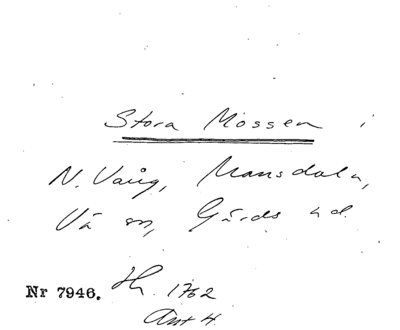 Stora Mossen i
N. Vång, Mansdala,
Vä sn, Gärds hd.
Nr 7946. Hr. 1762
Ant 4.